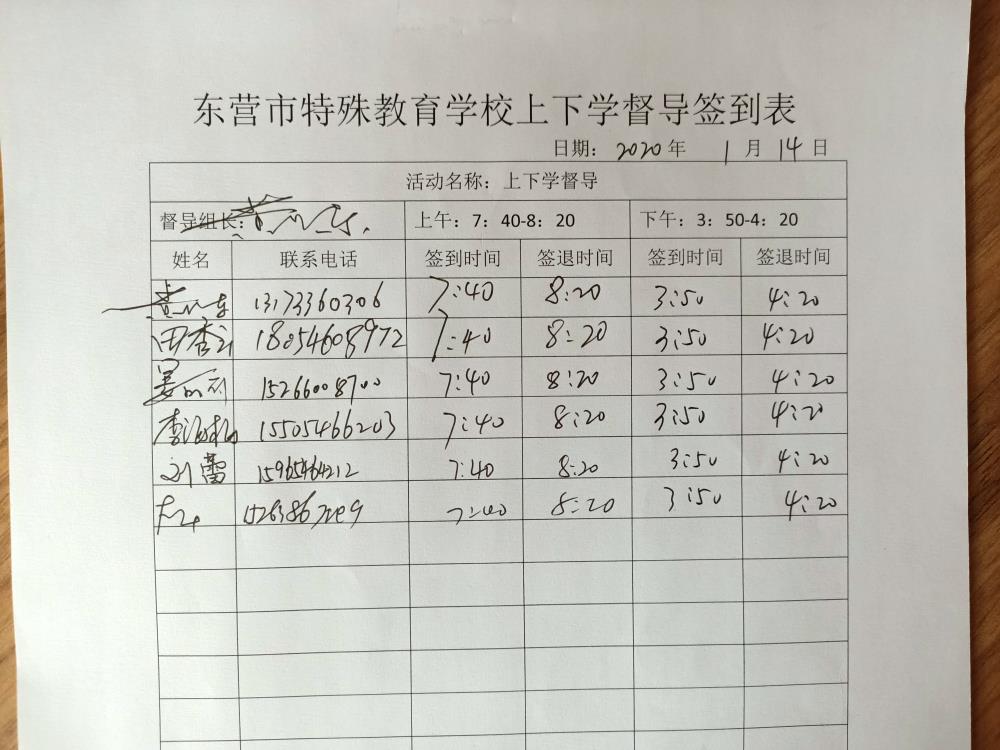 东营市特殊教育学校上下学督导签到表
日期: 2020年 1月14日
活动名称：上下学督导
督导组长: 上午：7：40-8：20 下午：3：50-4：20
姓名 联系电话 签到时间 签退时间 签到时间 签退时间
13173360306 7:40 8:20 3:50 4:20
18054608972 7:40 8:20 3:50 4:20
15266008700 7:40 8:20 3:50 4:20
15505466203 7:40 8:20 3:50 4:20
刘蕾 15965464212 7:40 8:20 3:50 4:20
7:40 8:20 3:50 4:20